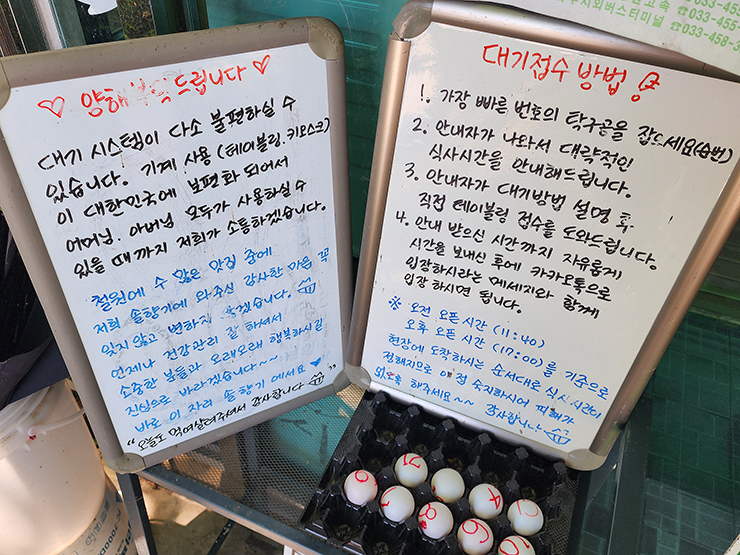 ♡ 양해부탁드립니다 ♡
대기 시스템이 다소 불편하실 수
있습니다. 기계 사용 (테이블링. 키오스크)
이 대한민국에 보편화 되어서
어머님. 아버님 모두가 사용하실 수
있을 때까지 저희가 소통하겠습니다.
철원에 수 많은 맛집 중에
저희 솔향기에 와주신 감사한 마음 꼭
잊지 않고 변하지 않겠습니다.
언제나 건강관리 잘 하셔서
소중한 분들과 오래오래 행복하시길
진심으로 바라겠습니다~~
바로 이 자리 솔향기에서요 ♥
"오늘도 먹여살려주셔서 감사합니다"
대기접수 방법
1. 가장 빠른 번호의 탁구공을 잡으세요(순번)
2. 안내자가 나와서 대략적인
식사시간을 안내해드립니다.
3. 안내자가 대기방법 설명 후
직접 테이블링 접수를 도와드립니다.
4. 안내 받으신 시간까지 자유롭게
시간을 보내신 후에 카카오톡으로
입장하시라는 메세지와 함께
입장 하시면 됩니다.
※ 오전 오픈 시간 (11:40)
오후 오픈 시간 (17:00)을 기준으로
현장에 도착하시는 순서대로 식사시간이
정해지므로 이점 숙지하시어 피해가
없도록 해주세요~~ 감사합니다
고속 ☎033-455-
시외버스터미널 ☎033-
☎033-458-3